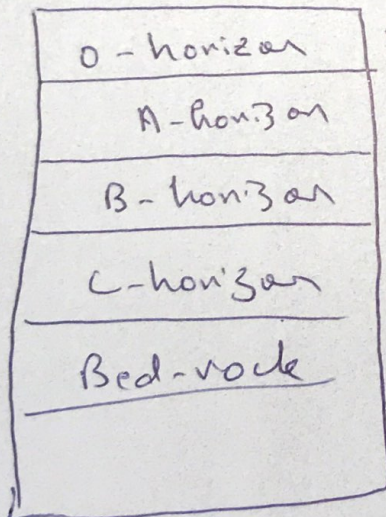 O-horizon
A-horizon
B-horizon
C-horizon
Bed-rock